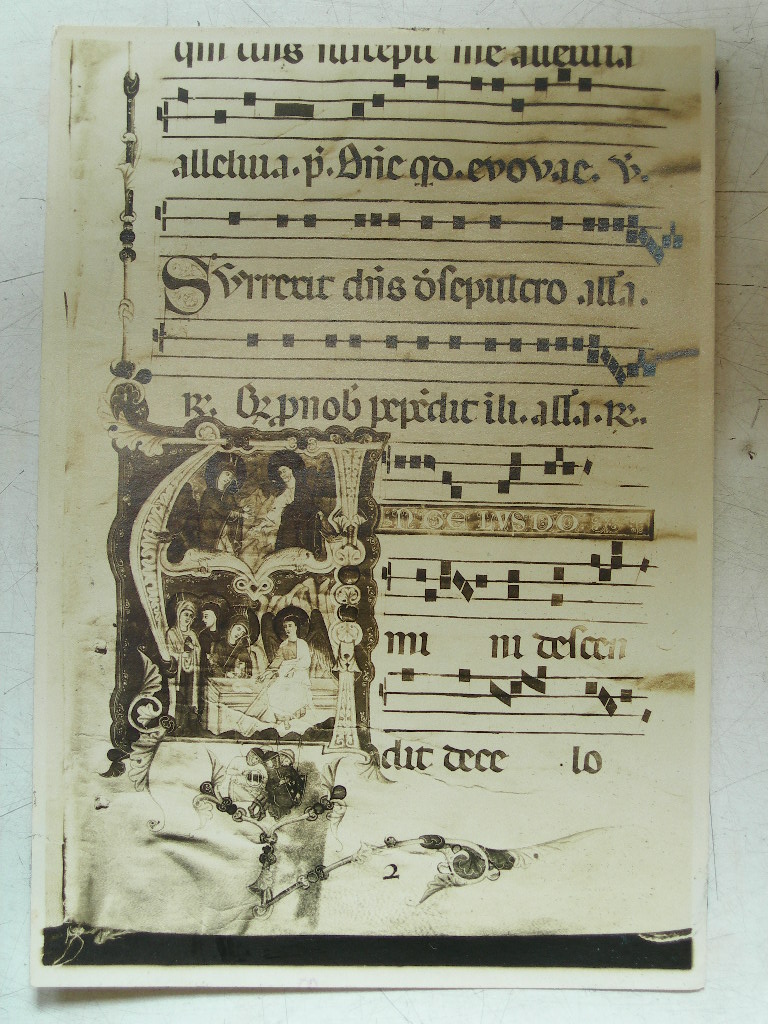 qui dñs suscepit me alleluia
alleluia. p̃. Dñe qd. evovae. v̄.
Surrexit dñs d̃ sepulcro all̃a.
R̃. Qr̃ p nob̃ pepẽdit ili. all̃a. R̃.
NGELUS DO
mi ni descen
dit de ce lo
2